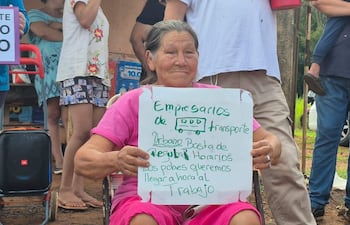 Empresarios
de transporte
Urbano Basta de
Horarios
pobres queremos
llegar a hora al
Trabajo